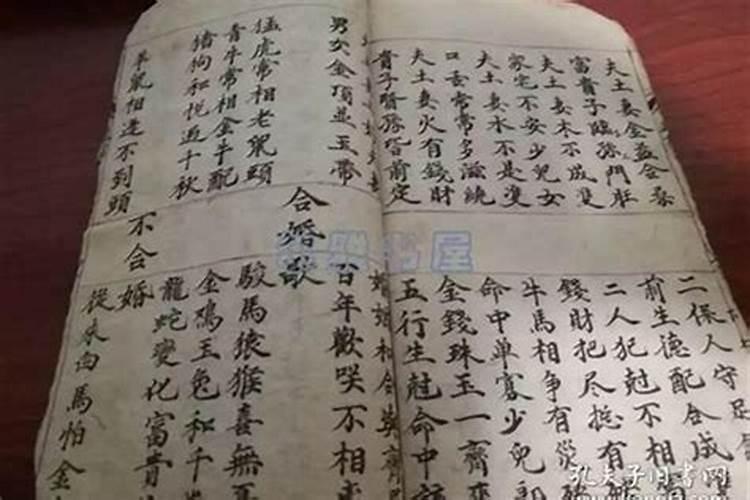 夫土妻金益合柔
富貴子臨孫門旺
夫土妻木不成雙
家宅不安少兒女
夫土妻水不是雙
口舌常常多滋繞
夫土妻火有錢財
貴子賢孫皆前定
二保人守足
前生德配合成
二人犯尅不相
錢財把尽挺有
牛馬相争有災
命中单寡少兒郎
金錢珠玉一齊来
五行生尅命中
婚姻和合
男女金頂並玉帶
猛虎常相老鼠頭
青牛常相金牛配
猪狗和悦過千秋
羊鼠相逢不到頭
合婚歌
不合婚
百年歡咲不相
駿馬猿猴喜無
金鸡玉兔和千
龍蛇变化富貴
從来白馬怕金
孔夫子旧书网